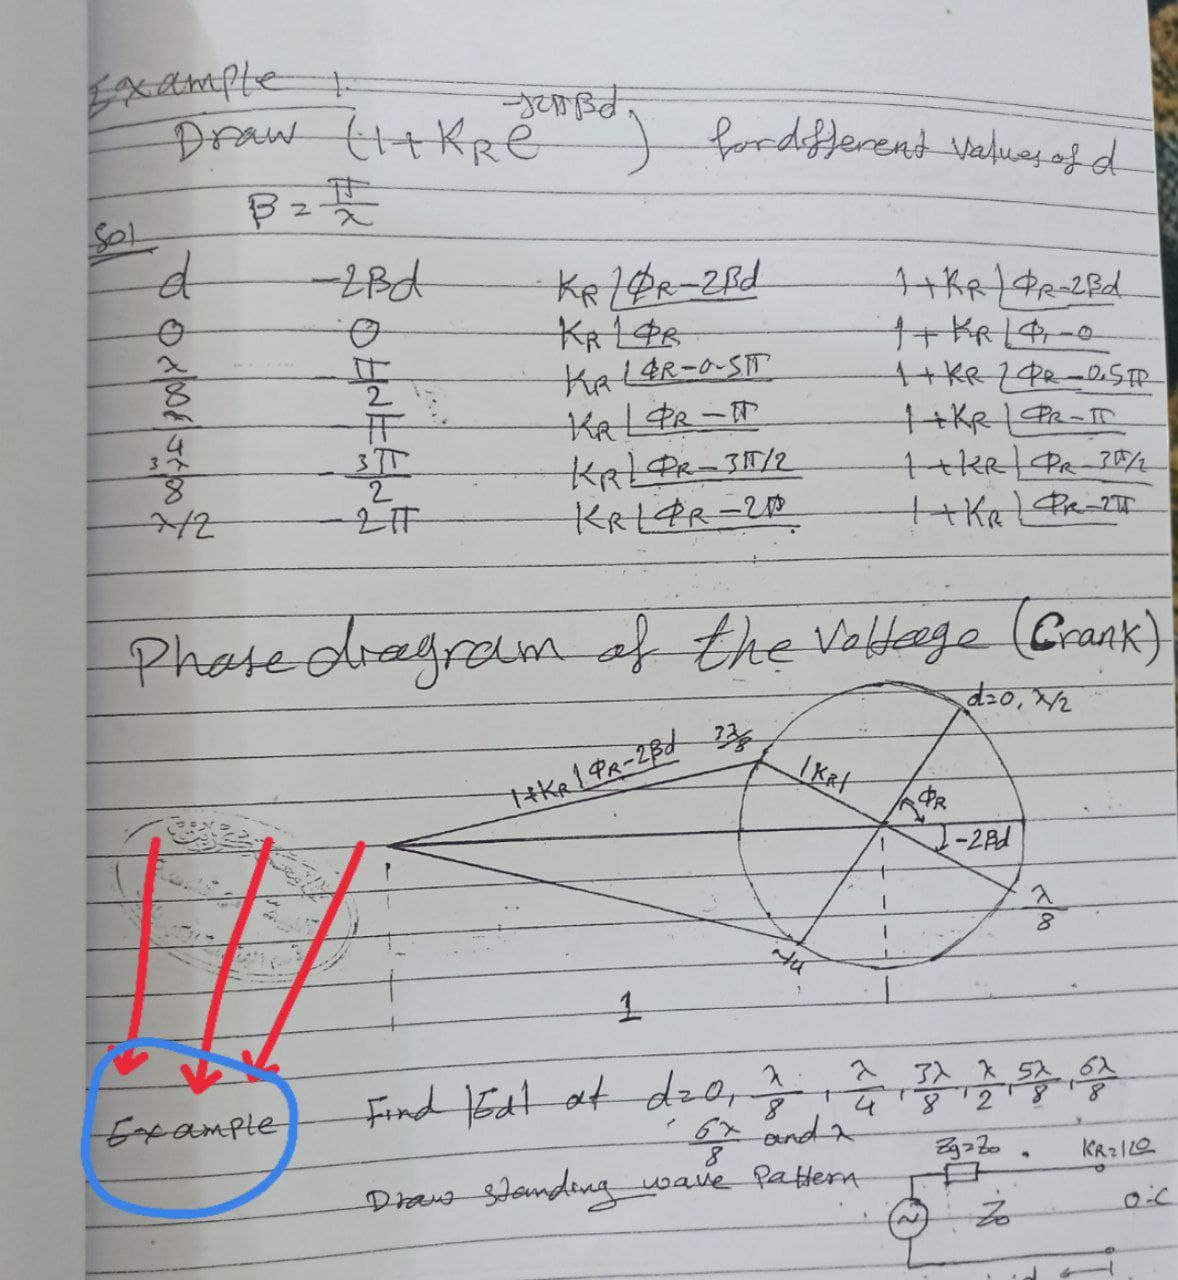 Example 1.
Draw (1+KR e^-j2πβd) for different values of d
β = π/λ
Sol
d -2βd KR∠ΦR-2βd 1+KR∠ΦR-2βd
0 0 KR∠ΦR 1+KR∠Φr-0
λ/8 -π/2 KR∠ΦR-0.5π 1+KR∠ΦR-0.5π
λ/4 -π KR∠ΦR-π 1+KR∠ΦR-π
3λ/8 -3π/2 KR∠ΦR-3π/2 1+KR∠ΦR-3π/2
λ/2 -2π KR∠ΦR-2π 1+KR∠ΦR-2π
Phase diagram of the Voltage (Crank)
d=0, λ/2
1+KR∠ΦR-2βd 3λ/8 |KR| ΦR
-2βd
λ/8
λ/4
1
Example Find |Ed| at d=0, λ/8, λ/4, 3λ/8, λ/2, 5λ/8, 6λ/8
6λ/8 and λ
Draw standing wave Pattern
Zg=Z0 KR=1∠0
Z0 O.C
d